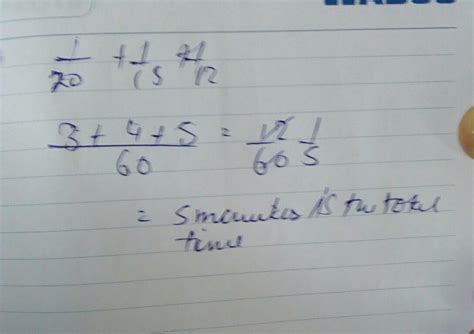 1/20 + 1/15 + 1/12
3 + 4 + 5 / 60 = 12/60 1/5
= 5 minutes is the total
time